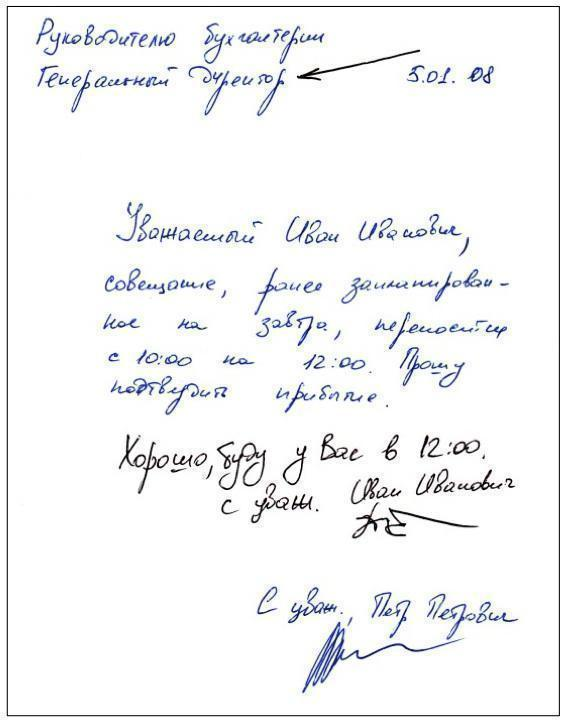 Руководителю бухгалтерии
Генеральный директор 5.01.08
Уважаемый Иван Иванович,
совещание, ранее запланирован-
ное на завтра, переносится
с 10:00 на 12:00. Прошу
подтвердить прибытие.
Хорошо, буду у Вас в 12:00.
с уваж. Иван Иванович
С уваж., Петр Петрович